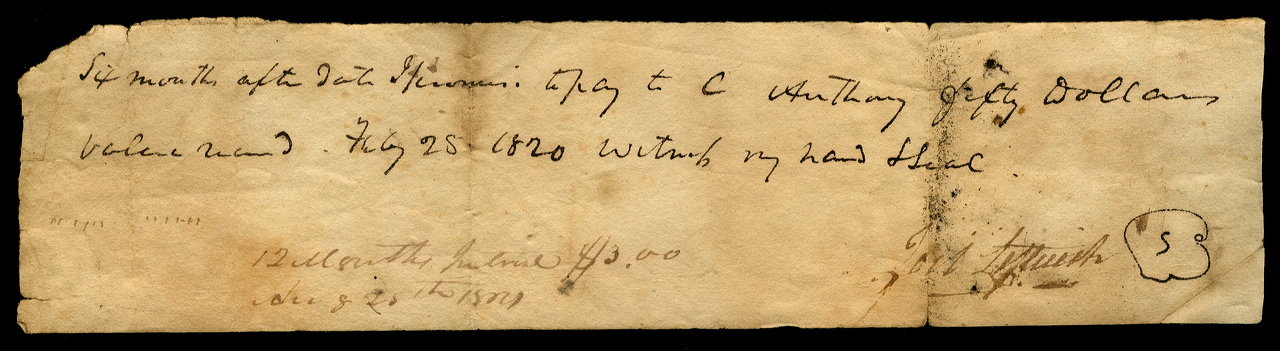 Six months after date I promise to pay to C Anthony fifty Dollars
value recead. Feby 28 1820 Witness my hand & Seal
S
12 Months Interest $3.00
Aug 28th 1821